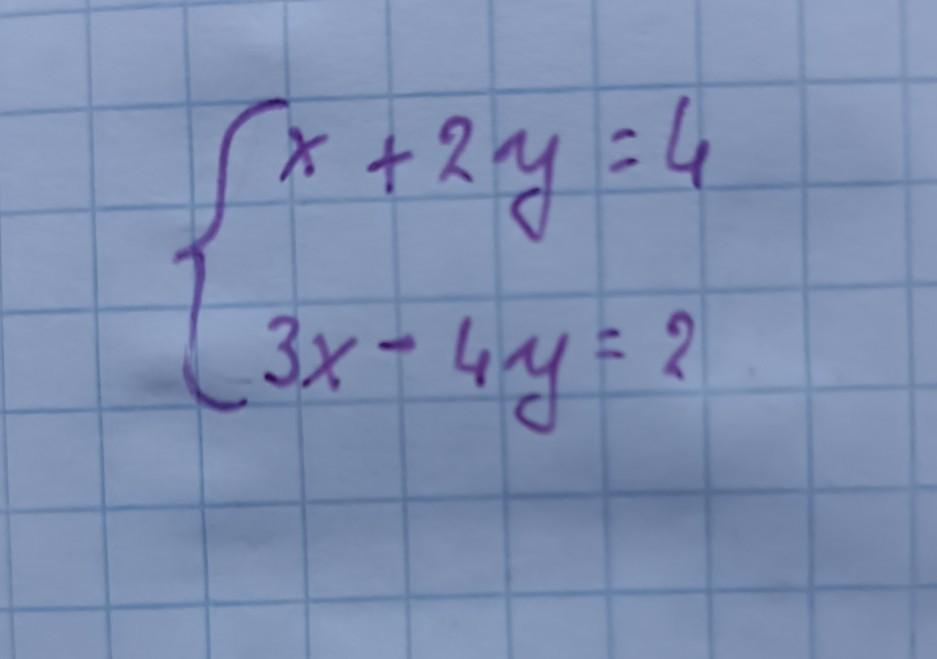 x + 2y = 4
3x - 4y = 2